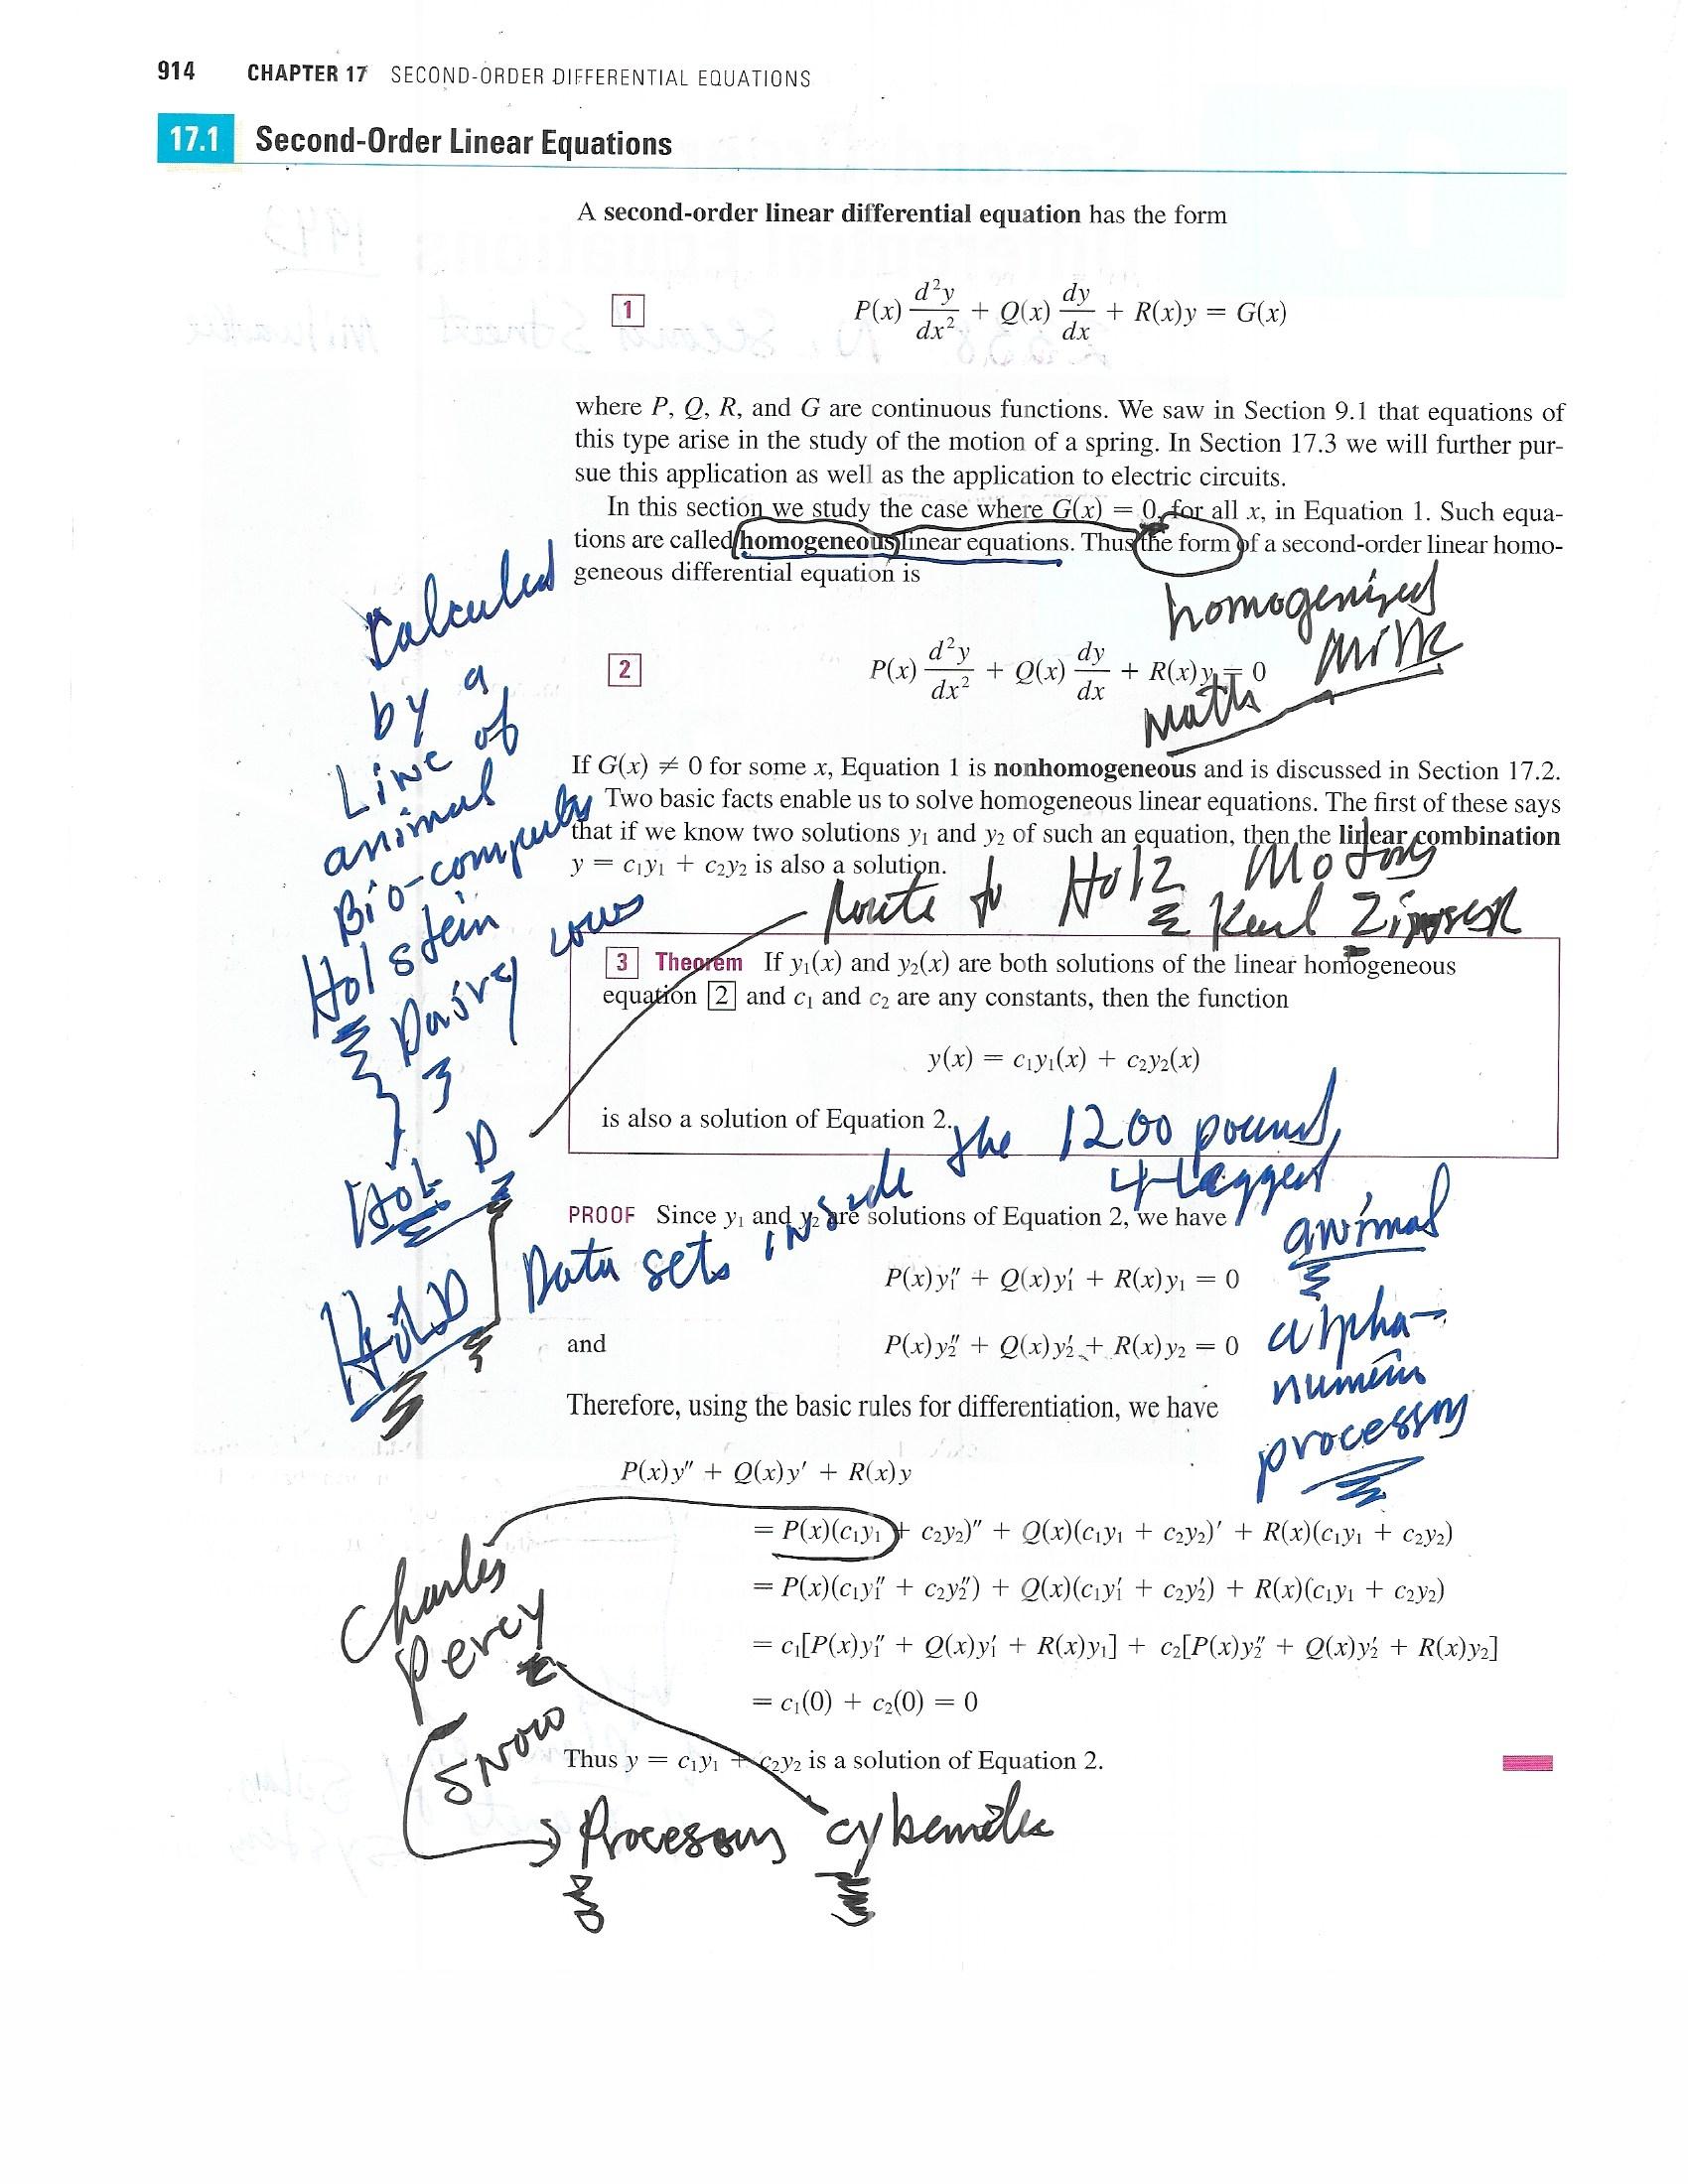 914 CHAPTER 17 SECOND-ORDER DIFFERENTIAL EQUATIONS
17.1 Second-Order Linear Equations
A second-order linear differential equation has the form
1 P(x) d²y/dx² + Q(x) dy/dx + R(x)y = G(x)
where P, Q, R, and G are continuous functions. We saw in Section 9.1 that equations of
this type arise in the study of the motion of a spring. In Section 17.3 we will further pur-
sue this application as well as the application to electric circuits.
In this section we study the case where G(x) = 0, for all x, in Equation 1. Such equa-
tions are called homogeneous linear equations. Thus the form of a second-order linear homo-
geneous differential equation is
homogenized
milk
math
2 P(x) d²y/dx² + Q(x) dy/dx + R(x)y = 0
If G(x) ≠ 0 for some x, Equation 1 is nonhomogeneous and is discussed in Section 17.2.
Two basic facts enable us to solve homogeneous linear equations. The first of these says
that if we know two solutions y₁ and y₂ of such an equation, then the linear combination
y = c₁y₁ + c₂y₂ is also a solution.
Route to Holz Motors
Karl
by a
Line of
animal
Bio-computer
Holstein
Dairy cows
Hol D
3 Theorem If y₁(x) and y₂(x) are both solutions of the linear homogeneous
equation 2 and c₁ and c₂ are any constants, then the function
y(x) = c₁y₁(x) + c₂y₂(x)
is also a solution of Equation 2.
Data sets inside the 1200 pound,
4-legged
animal
alpha-
numeric
PROOF Since y₁ and y₂ are solutions of Equation 2, we have
P(x)y₁″ + Q(x)y₁′ + R(x)y₁ = 0
and P(x)y₂″ + Q(x)y₂′ + R(x)y₂ = 0
Therefore, using the basic rules for differentiation, we have
P(x)y″ + Q(x)y′ + R(x)y
= P(x)(c₁y₁ + c₂y₂)″ + Q(x)(c₁y₁ + c₂y₂)′ + R(x)(c₁y₁ + c₂y₂)
= P(x)(c₁y₁″ + c₂y₂″) + Q(x)(c₁y₁′ + c₂y₂′) + R(x)(c₁y₁ + c₂y₂)
= c₁[P(x)y₁″ + Q(x)y₁′ + R(x)y₁] + c₂[P(x)y₂″ + Q(x)y₂′ + R(x)y₂]
= c₁(0) + c₂(0) = 0
Thus y = c₁y₁ + c₂y₂ is a solution of Equation 2.
Charles
Percy
Snow